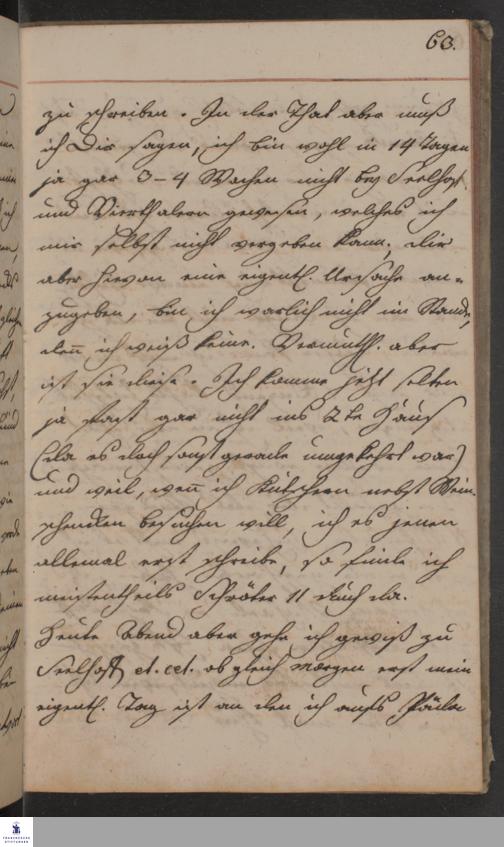 63.
zu schreiben. In der That aber muß
ich Dir sagen, ich bin wohl in 14 Tagen
ja gar 3-4 Wochen nicht bey Seelhoft
und Vierthalern gewesen, welches ich
mir selbst nicht vergeben kann; dir
aber hievon eine eigentl. Ursache an-
zugeben, bin ich warlich nicht im Stande,
den̄ ich weiß keine. Vermuthl. aber
ist sie diese. Ich komme jetzt selten
ja fast gar nicht ins 2te Haus
(da es doch sonst gerade umgekehrt war)
und weil, wen̄ ich Kutschern nebst Wein-
schenken besuchen will, ich es jenen
allemal erst schreibe, so finde ich
meistentheils Schröter 11 auch da.
Heute Abend aber gehe ich gewiß zu
Seelhoft et. cet. obgleich morgen erst mein
eigentl. Tag ist an den ich aufs
FRANCKESCHE
STIFTUNGEN